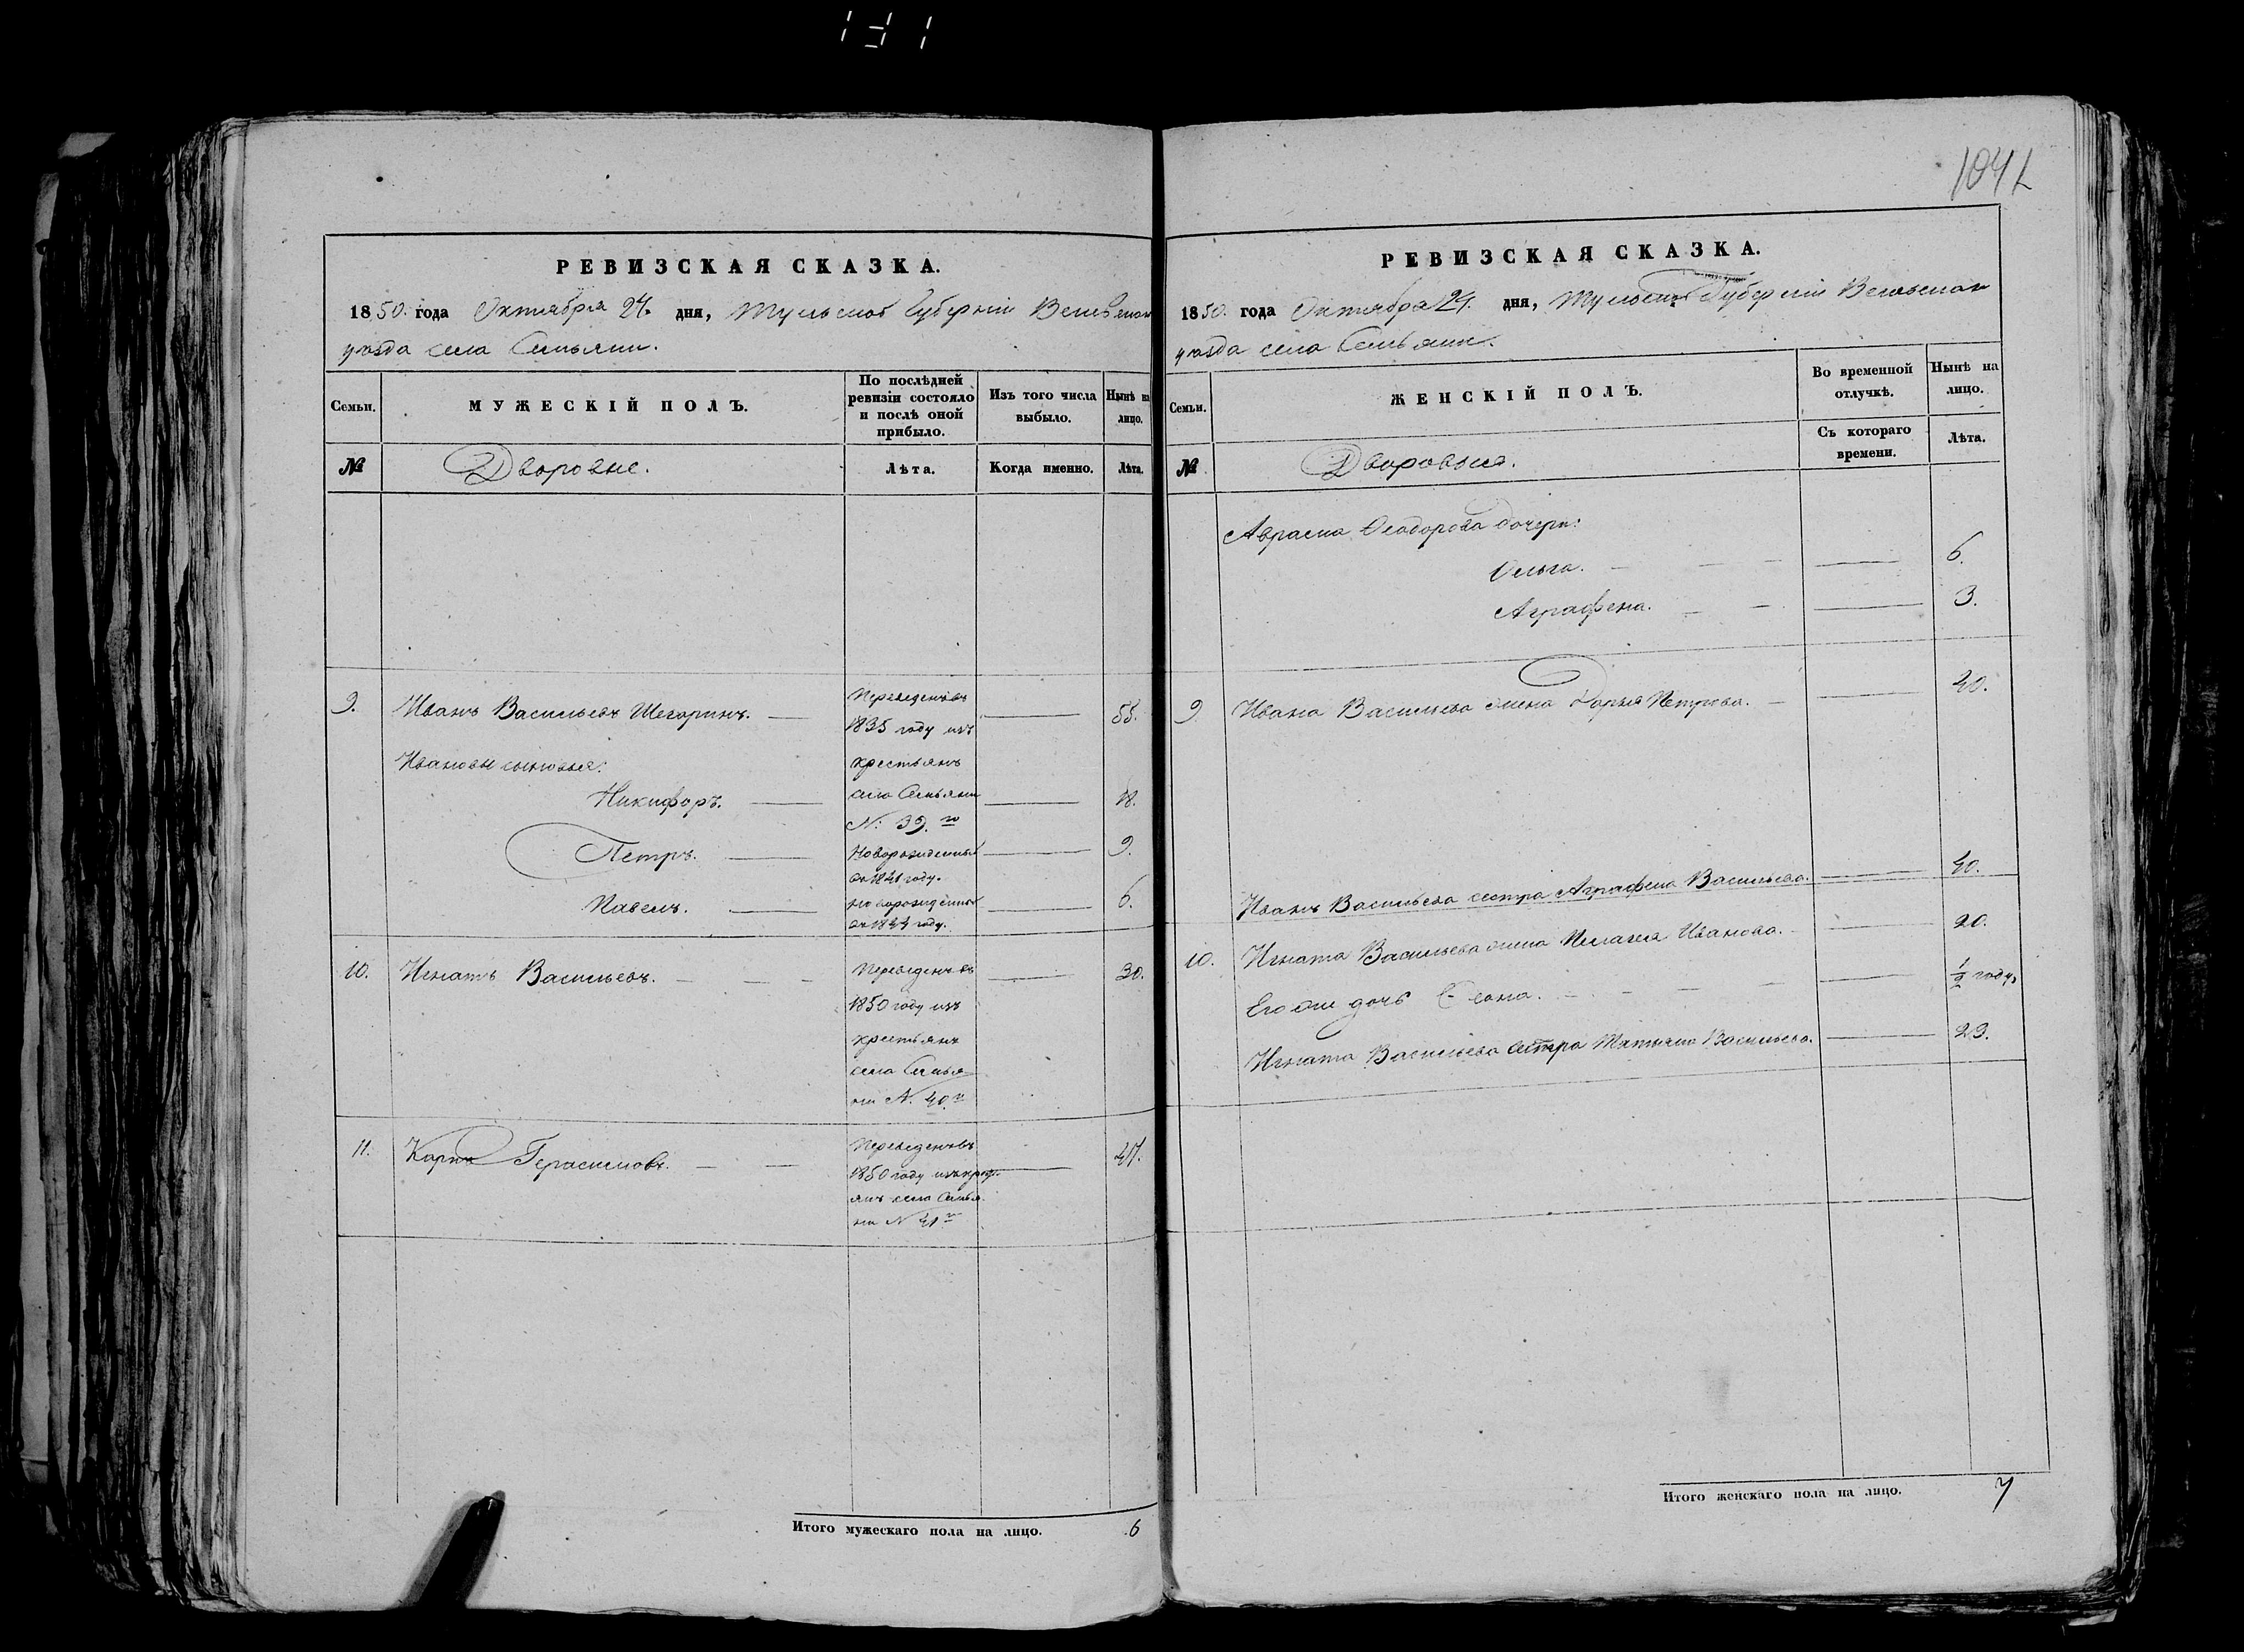 131
РЕВИЗСКАЯ СКАЗКА.
1850. года Октября 24. дня, Тульской Губерніи Веневскаго
уѣзда села Семьяни.
Семьи.
МУЖЕСКІЙ ПОЛЪ.
По послѣдней ревизіи состояло и послѣ оной прибыло.
Изъ того числа выбыло.
Нынѣ на лицо.
№
Дворовые.
Лѣта.
Когда именно.
Лѣта.
9. Иванъ Васильевъ
Переведенъ въ
55.
1835 году изъ
Ивановы сыновья:
крестьянъ
Никифоръ.
села Семьяни
18.
N: 39. го
Петръ.
Новорожденный
9.
въ 1841 году.
Павелъ.
новорожденный
6.
въ 1844 году.
10. Игнатъ Васильевъ.
Переведенъ въ
30.
1850 году изъ
крестьянъ
села Семья
ни N. 40. го
11. Карпъ Герасимовъ.
Переведенъ въ
47.
1850 году изъ крест
янъ села Семья
ни N 41 го
Итого мужескаго пола на лицо. 6
РЕВИЗСКАЯ СКАЗКА.
1850. года Октября 24. дня, Тульской Губерніи Веневскаго
уѣзда села Семьяни.
Семьи.
ЖЕНСКІЙ ПОЛЪ.
Во временной отлучкѣ.
Нынѣ на лицо.
Съ котораго времени.
Лѣта.
№
Дворовыя.
Ѳеодорова дочери:
Ольга.
6.
Аграфена.
3.
9 Ивана Васильева жена Дарья Петрова.
40.
Иванъ Васильева сестра Аграфена Васильева.
40.
10. Игната Васильева жена Пелагея Иванова.
20.
Его же дочь
1/2 году,
Игната Васильева сестра Татьяна Васильева.
23.
Итого женскаго пола на лицо. 7